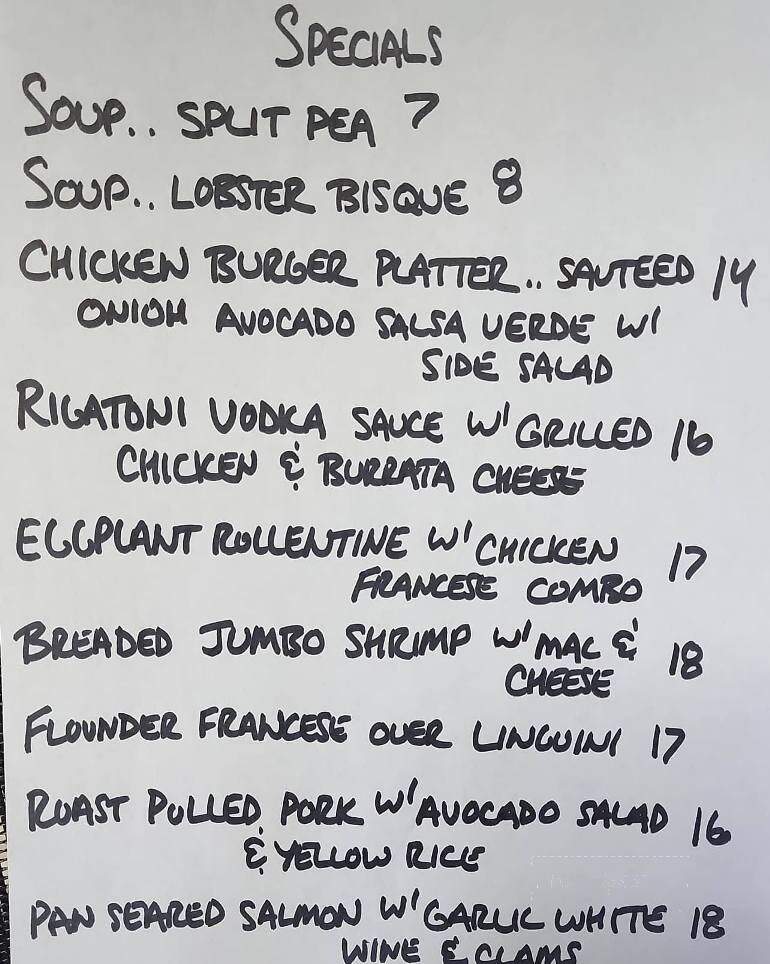 SPECIALS
SOUP.. SPLIT PEA 7
SOUP.. LOBSTER BISQUE 8
CHICKEN BURGER PLATTER.. SAUTEED 14
ONION AVOCADO SALSA VERDE W/
SIDE SALAD
RIGATONI VODKA SAUCE W/ GRILLED 16
CHICKEN & BURRATA CHEESE
EGGPLANT ROLLENTINE W/ CHICKEN 17
FRANCESE COMBO
BREADED JUMBO SHRIMP W/ MAC & 18
CHEESE
FLOUNDER FRANCESE OVER LINGUINI 17
ROAST PULLED PORK W/ AVOCADO SALAD 16
& YELLOW RICE
PAN SEARED SALMON W/ GARLIC WHITE 18
WINE & CLAMS